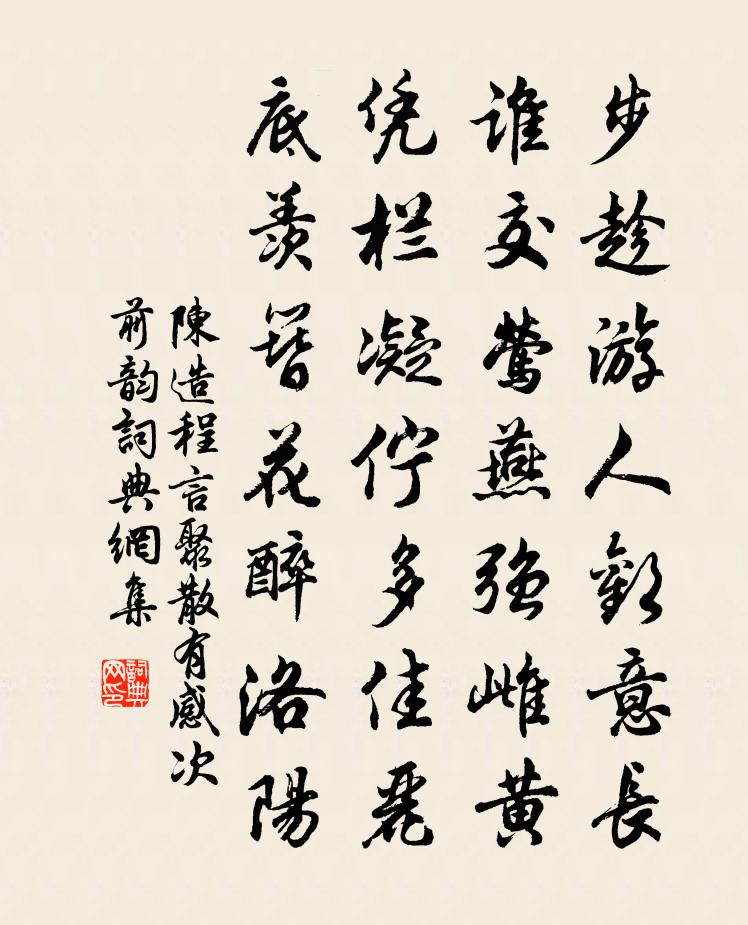 步趁游人歡意長
誰交鶯燕强雌黄
凭栏凝佇多佳麗
底羨簪花醉洛陽
陳造程言聚散有感次
前韵詞典網集
詞典网印